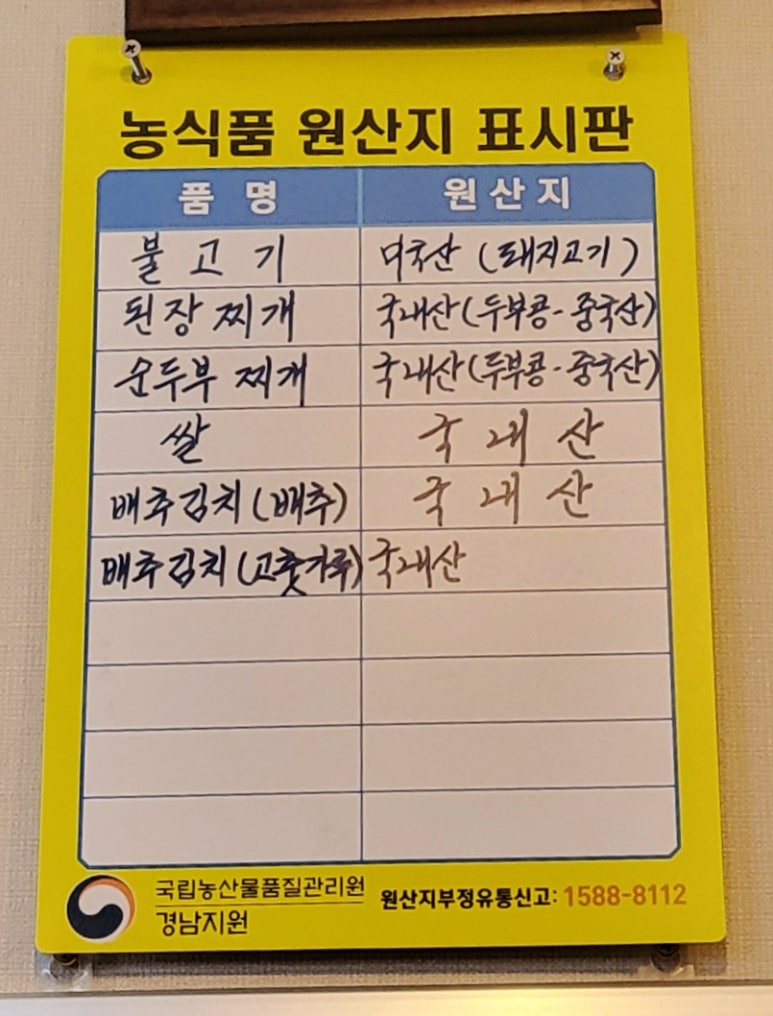 농식품 원산지 표시판
품 명 원 산 지
불 고 기 미국산 (돼지고기)
된장 찌개 국내산(두부콩-중국산)
순두부 찌개 국내산(두부콩-중국산)
쌀 국 내 산
배추김치(배추) 국 내 산
배추김치(고춧가루) 국내산
국립농산물품질관리원
경남지원
원산지부정유통신고: 1588-8112